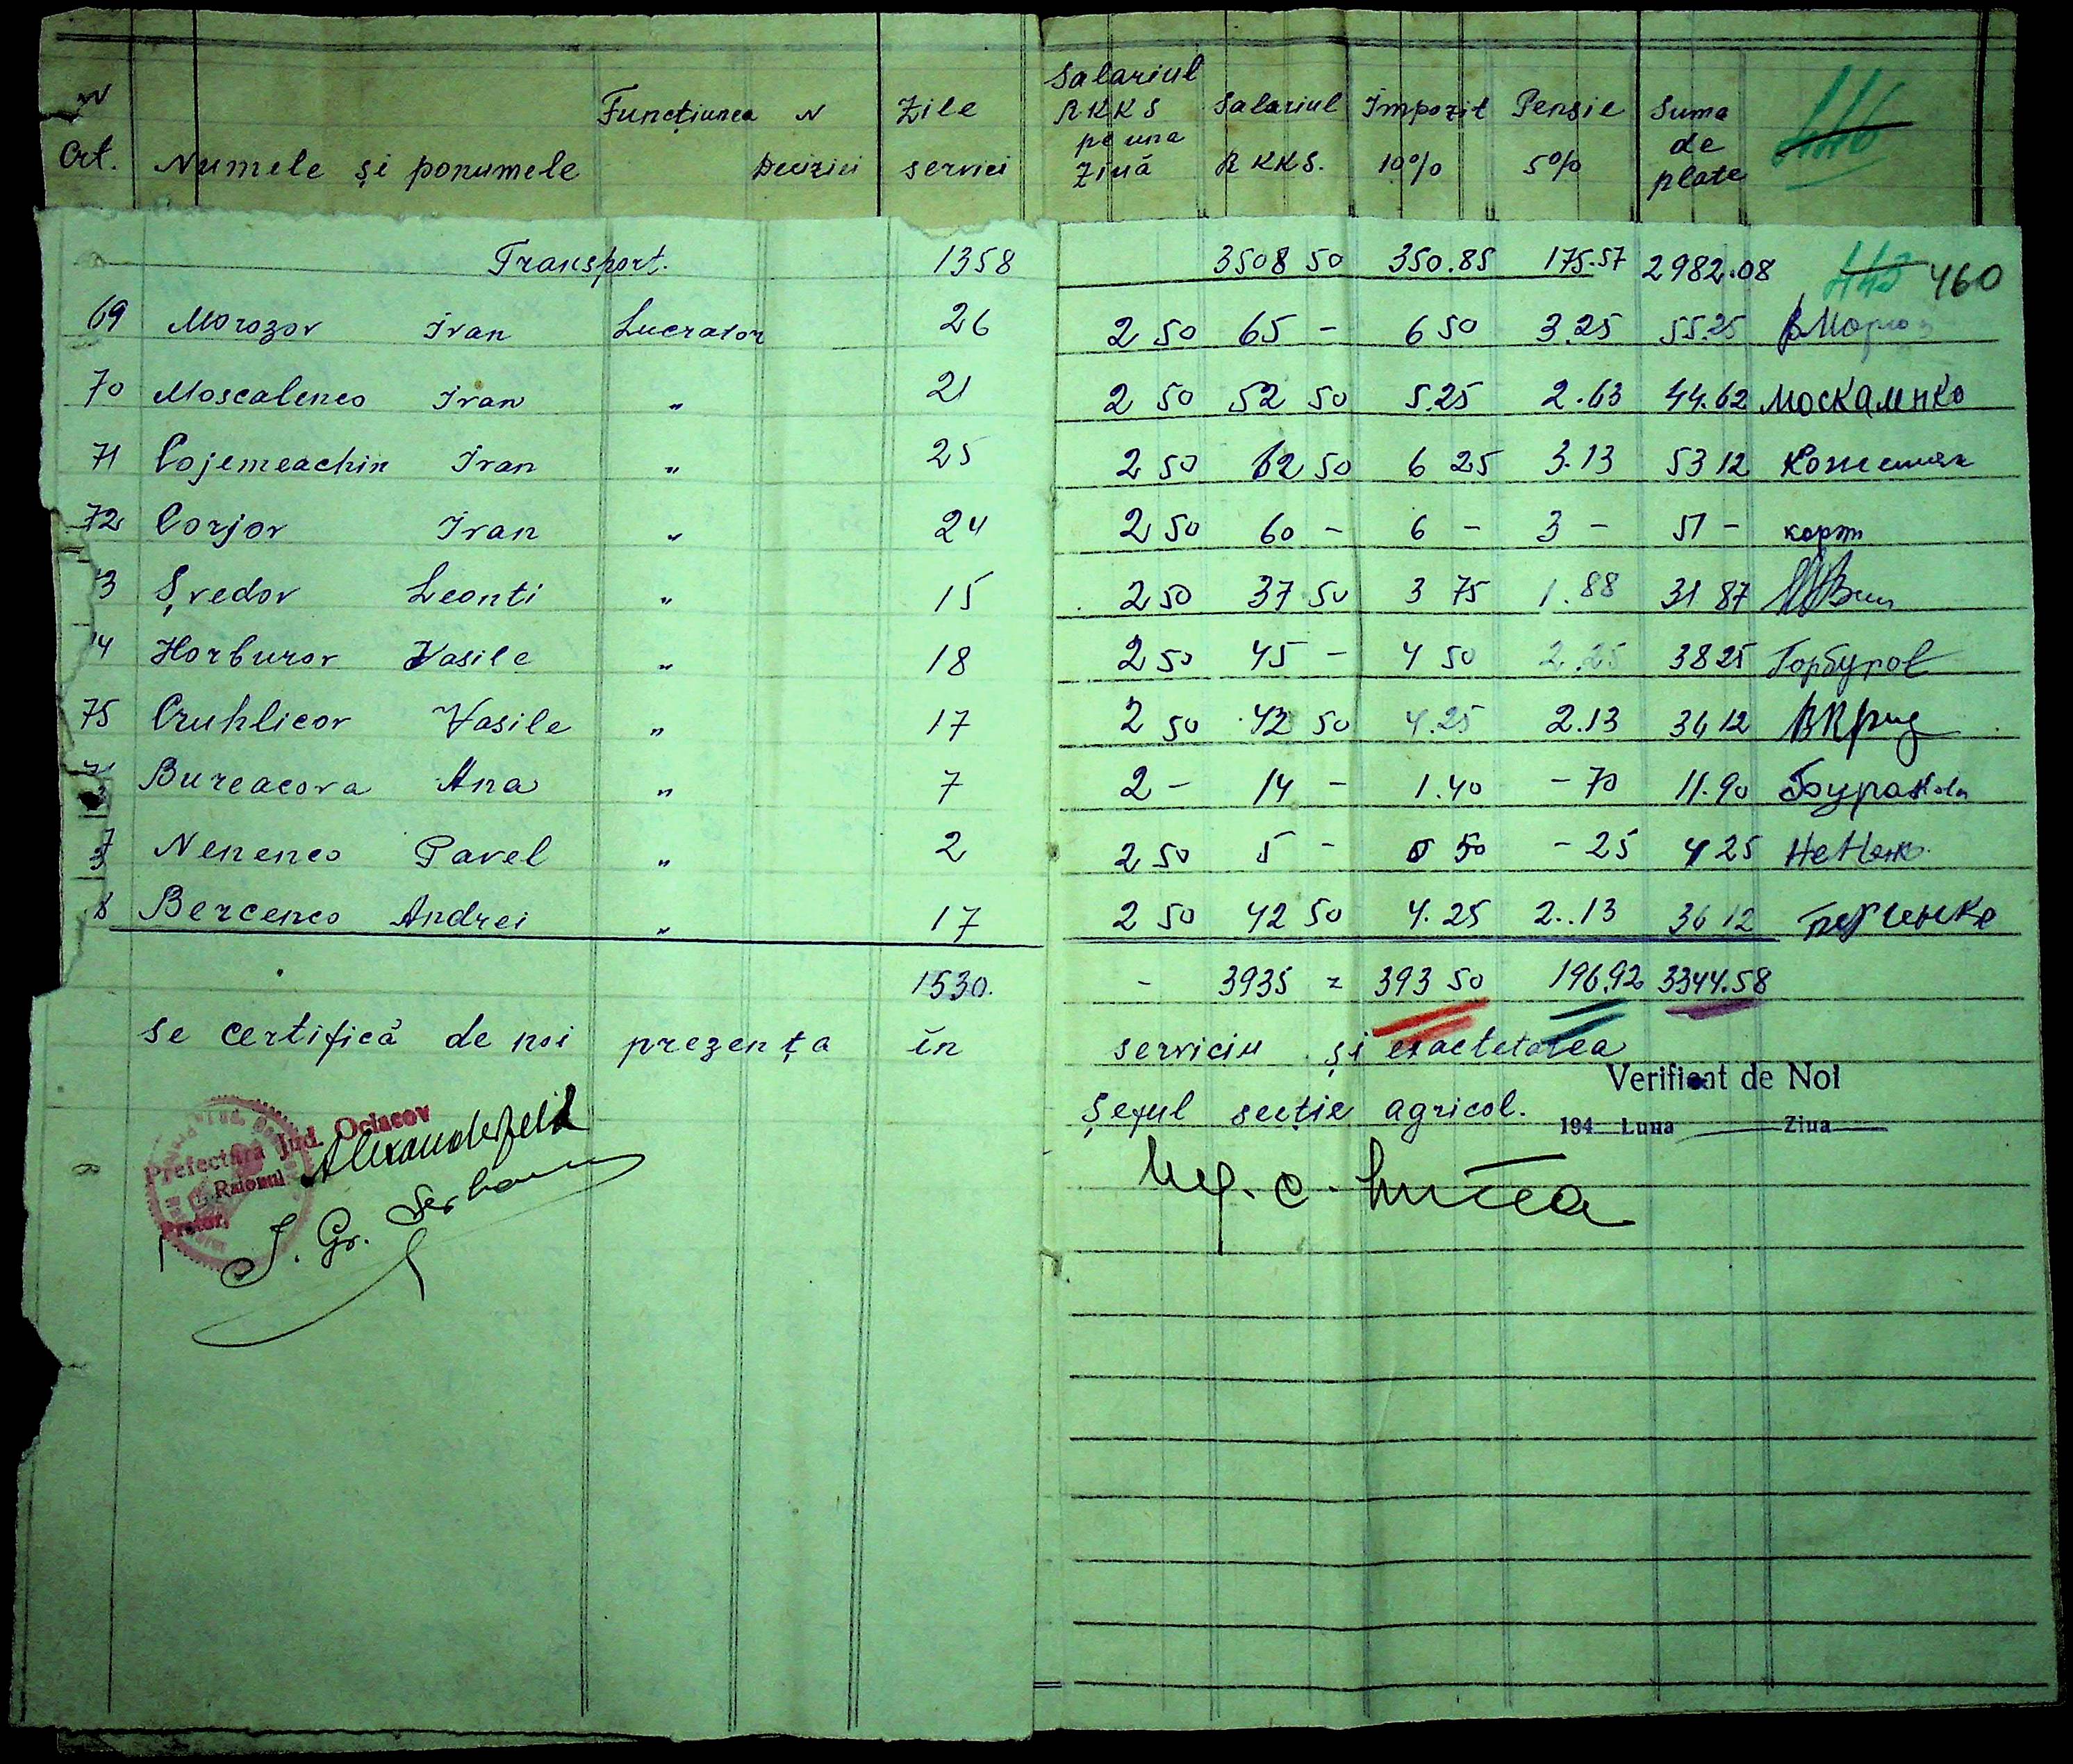 N Crt. Numele și ponumele Funcțiunea N Deciziei Zile servici Salariul RKKS pe una Ziuă Salariul RKKS. Impozit 10% Pensie 5% Suma de plate
Transport. 1358 3508 50 350.85 175.57 2982.08 460
69 Morozov Ivan Lucrator 26 2 50 65 - 6 50 3.25 55.25
70 Moscalenco Ivan " 21 2 50 52 50 5.25 2.63 44.62 Москаленко
71 Cojemeachin Ivan " 25 2 50 62 50 6 25 3.13 53 12
72 Corjov Ivan " 24 2 50 60 - 6 - 3 - 51 - корж
3 Șvedov Leonti " 15 2 50 37 50 3 75 1.88 31 87
4 Horburov Vasile " 18 2 50 45 - 4 50 2.25 38 25 Горбуров
75 Cruhlicov Vasile " 17 2 50 42 50 4.25 2.13 36 12
Bureacova Ana " 7 2 - 14 - 1.40 - 70 11.90
7 Nenenco Pavel " 2 2 50 5 - 0 50 - 25 4 25
8 Bercenco Andrei " 17 2 50 42 50 4.25 2..13 36 12
1530. - 3935 = 393 50 196.92 3344.58
Se certifică de noi prezența în serviciu și exactetatea
Verificat de Noi
194 Luna Ziua
Șeful secție agricol.
Prefectura Jud. Ociacov
Raionul Alexanderfeld
Pretor,